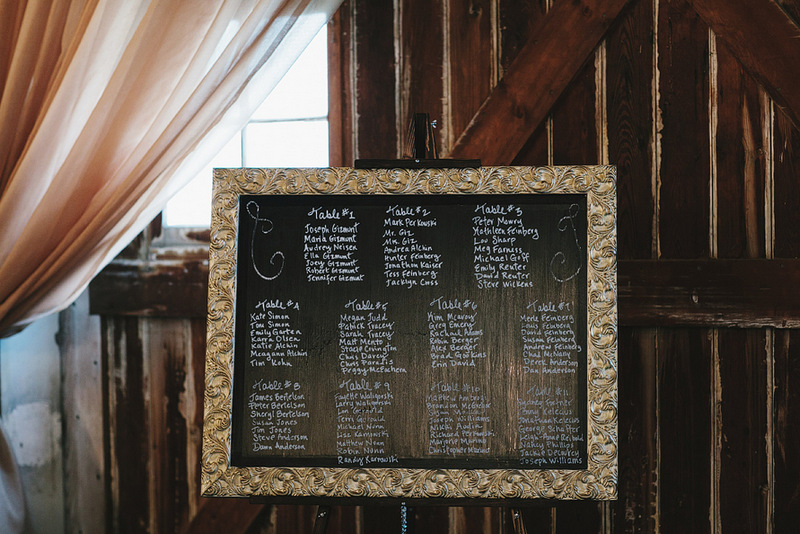 Table #1
Joseph Gizmunt
Marla Gizmunt
Audrey Neisen
Ella Gizmunt
Joey Gizmunt
Robert Gizmunt
Jennifer Gizmunt
Table #2
Mark Perkowski
Mr. Giz
Mrs. Giz
Andrea Alchin
Hunter Feinberg
Jonathan Kaiser
Tess Feinberg
Jacklyn Cross
Table #3
Peter Mowry
Kathleen Feinberg
Lou Sharp
Meg Farness
Michael Goff
Emily Reuter
David Reuter
Steve Wickens
Table #4
Kate Simon
Tom Simon
Emily Garten
Karra Olsen
Katie Alchin
Meagann Alchin
Tim Kohn
Table #5
Megan Judd
Patrick Tracey
Sarah Tracey
Matt Mento
Stacie Covington
Chris Davey
Chris Paradis
Peggy McEachern
Table #6
Kim McAvoy
Greg Emery
Rachael Adams
Robin Berger
Alex Berger
Brad Gookins
Erin David
Table #7
Merle Feinberg
Louis Feinberg
David Feinberg
Susan Feinberg
Andrew Feinberg
Chad McNany
Derek Anderson
Dan Anderson
Table #8
James Bertelson
Peter Bertelson
Sheryl Bertelson
Susan Jones
Jim Jones
Steve Anderson
Dawn Anderson
Table #9
Fayette Waligorski
Larry Waligorski
Lon
Terri
Michael Nonn
Liza Kamowski
Matthew Nonn
Robin Nonn
Randy Karrowski
Table #10
Matthew Ambrose
Brandon McGehee
Joseph Williams
Micah Audin
Richard Perkowski
Marjorie Murino
Christopher Murino
Table #11
Anny Kelecius
Jonathan Kelecius
George Schaffer
Leigh-Anne Reibold
Wacey Phillips
Jackie Demurey
Joseph Williams